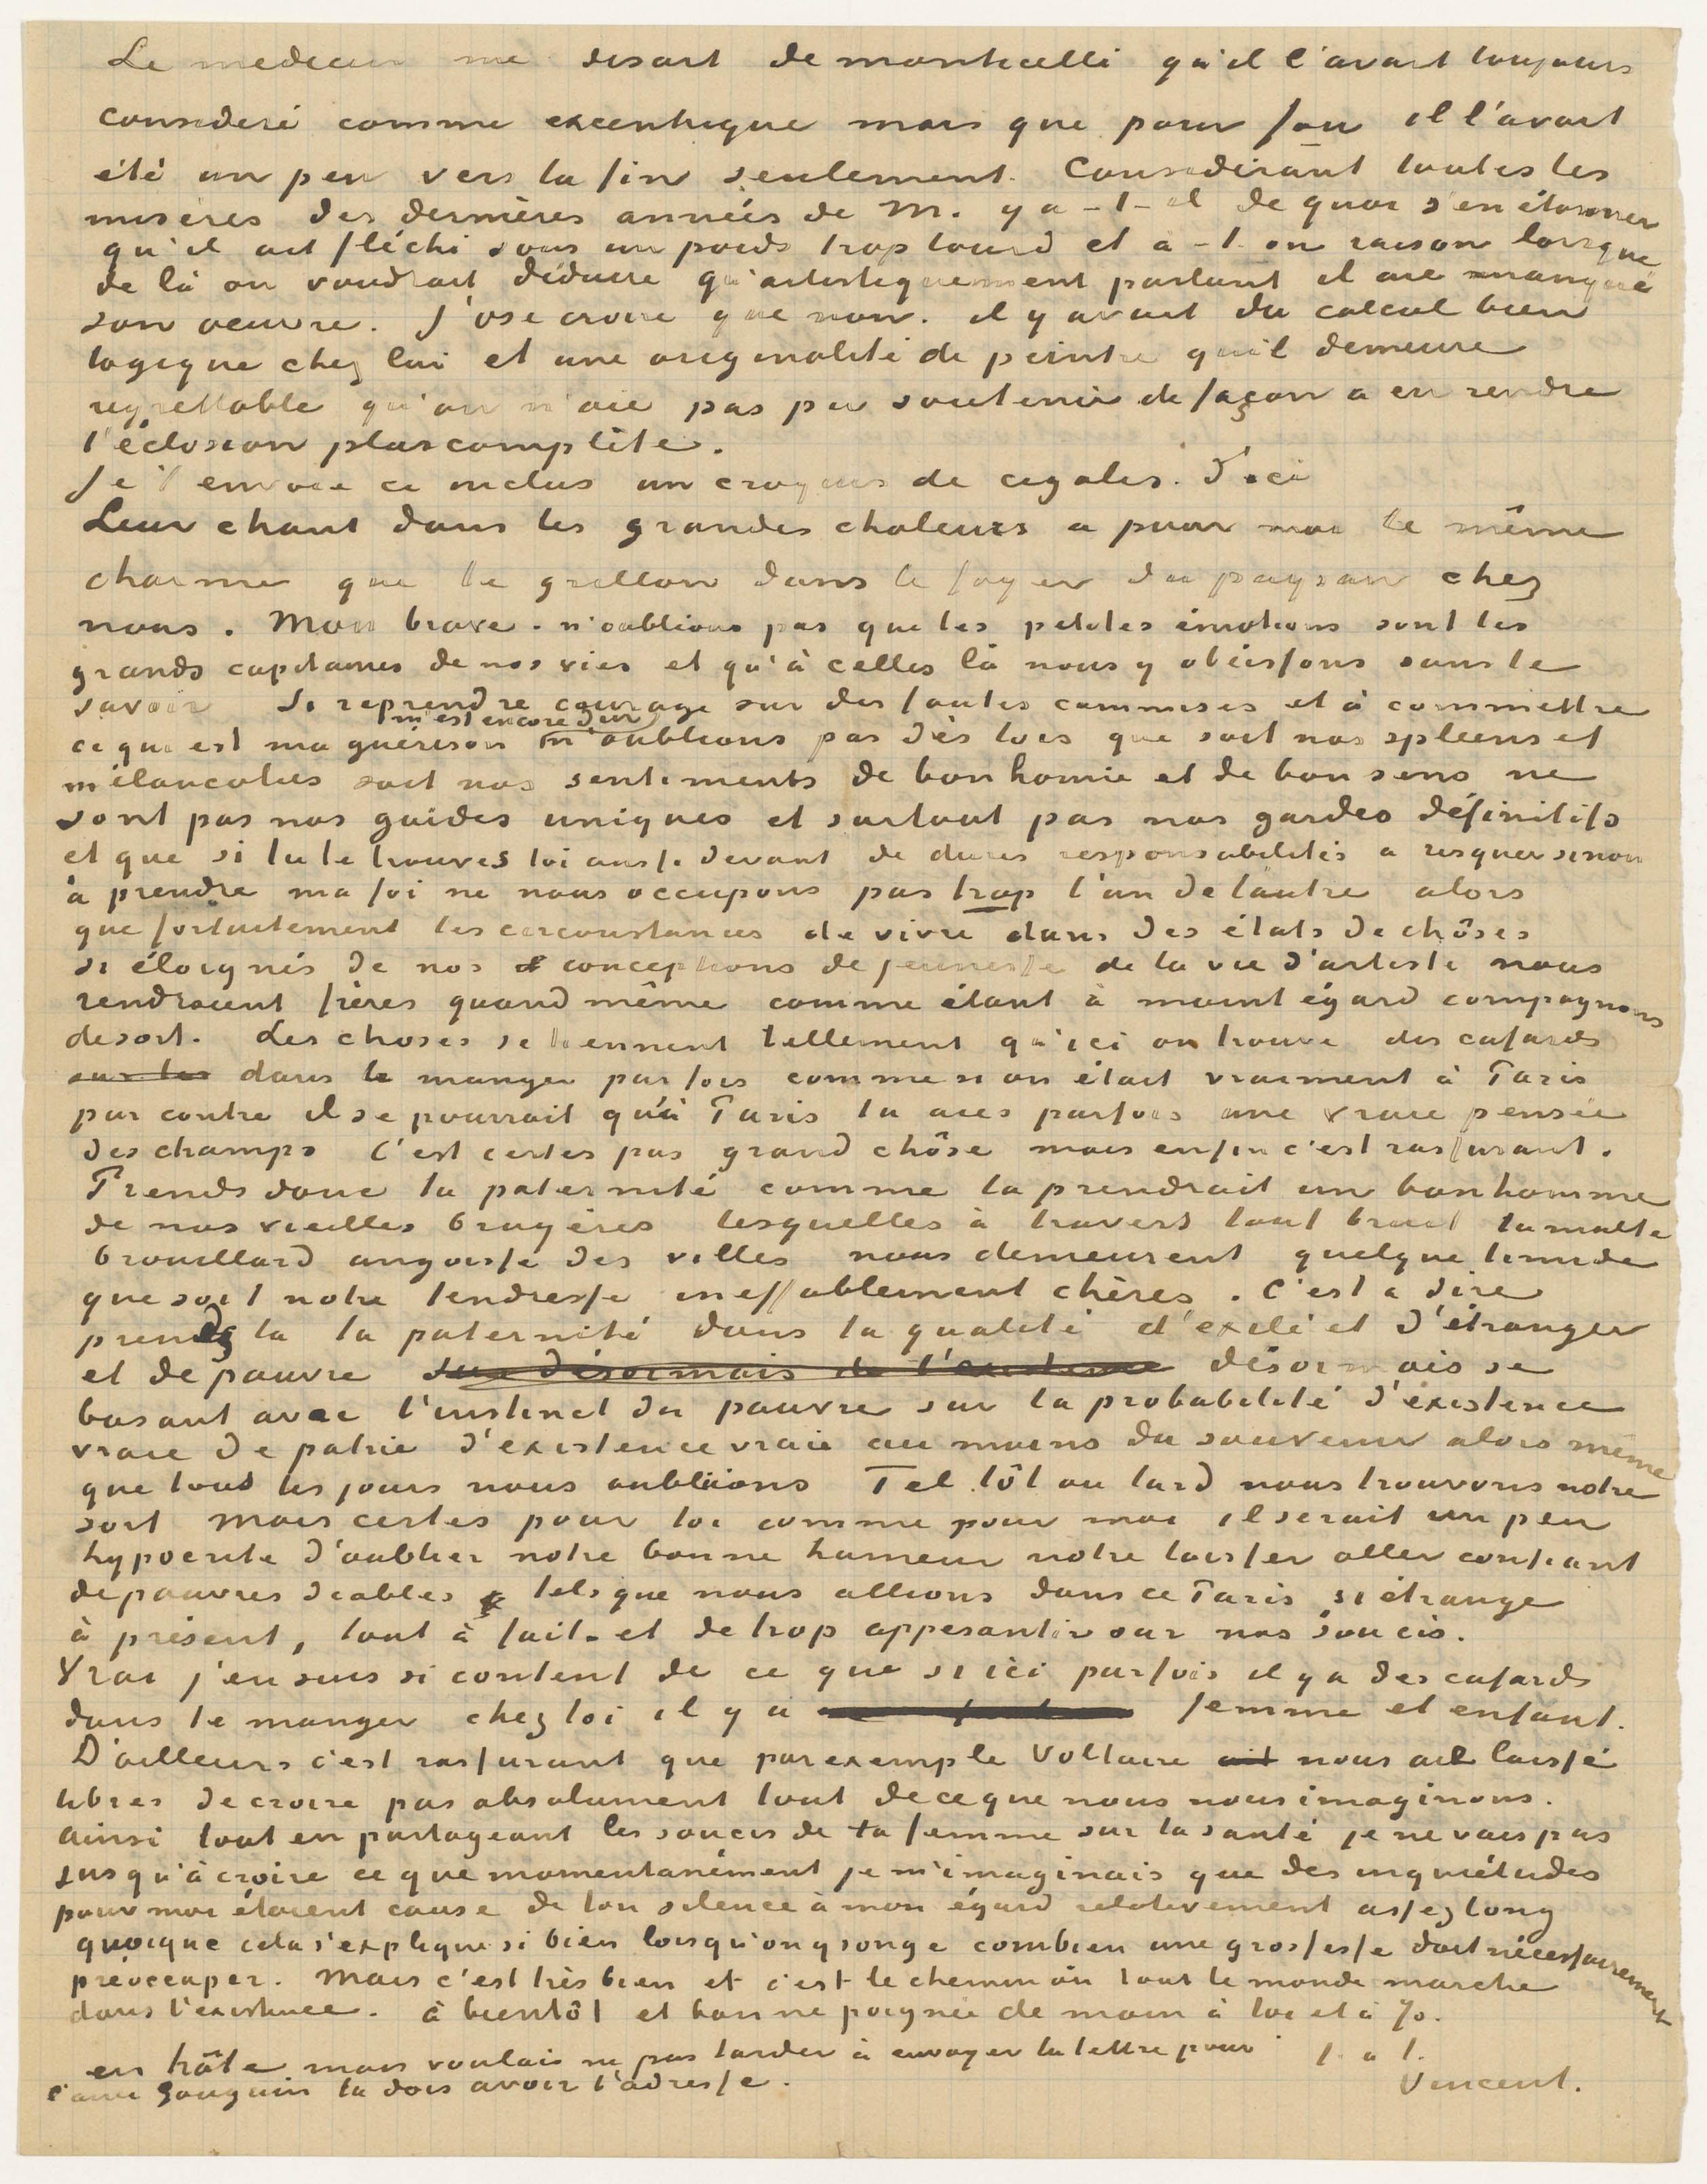 Le medecin me disait de monticelli qu'il l'avait toujours
consideré comme excentrique mais que pour fou il l'avait
été un peu vers la fin seulement. Considerant toutes les
miseres des dernières années de M. y a-t-il de quoi s'en étonner
qu'il ait fléchi sous un poids trop lourd et a-t-on raison lorsque
de là on voudrait déduire qu'artistiquement parlant il aie manqué
son oeuvre. J'ose croire que non. il y avait du calcul bien
logique chez lui et une originalité de peintre qu'il demeure
regrettable qu'on n'aie pas pu soutenir de façon a en rendre
l'éclosion plus complète.
Je t'envoie ci inclus un croquis de cigales. d'ici
Leur chant dans les grandes chaleurs a pour moi le même
charme que le grillon dans le foyer du paysan chez
nous. Mon brave - n'oublions pas que les petites émotions sont les
grands capitaines de nos vies et qu'à celles là nous y obéissons sans le
savoir Si reprendre courage sur des fautes commises et à commettre
m'est encore dur
ce qui est ma guérison n'oublions pas dès lors que soit nos spleens et
mélancolies soit nos sentiments de bonhomie et de bon sens ne
sont pas nos guides uniques et surtout pas nos gardes définitifs
et que si tu te trouves toi aussi devant de dures responsabilités a risquer sinon
à prendre ma foi ne nous occupons pas trop l'un de l'autre alors
que fortuitement les circonstances de vivre dans des états de chôses
si éloignés de nos conceptions de jeunesse de la vie d'artiste nous
rendraient frères quand même comme étant à maint égard compagnons
de sort. Les choses se tiennent tellement qu'ici on trouve des cafards
sur les dans le manger parfois comme si on était vraiment à Paris
par contre il se pourrait qu'à Paris tu aies parfois une vraie pensée
des champs C'est certes pas grand chôse mais enfin c'est rassurant.
Prends donc ta paternité comme la prendrait un bonhomme
de nos vieilles bruyères lesquelles à travers tout bruit tumulte
brouillard angoisse des villes nous demeurent quelque timide
que soit notre tendresse ineffablement chères. C'est a dire
prends la ta paternité dans ta qualité d'exilé et d'étranger
et de pauvre désormais se
basant avec l'instinct du pauvre sur la probabilité d'existence
vraie de patrie d'existence vraie au moins du souvenir alors même
que tous les jours nous oublions Tel tôt ou tard nous trouvons notre
sort mais certes pour toi comme pour moi il serait un peu
hypocrite d'oublier notre bonne humeur notre laisser aller confiant
de pauvres diables tels que nous allions dans ce Paris si étrange
à présent, tout à fait - et de trop appesantir sur nos soucis.
Vrai j'en suis si content de ce que si ici parfois il y a des cafards
dans le manger chez toi il y a femme et enfant.
D'ailleurs c'est rassurant que par exemple Voltaire ait nous ait laissé
libres de croire pas absolument tout de ce que nous nous imaginons.
ainsi tout en partageant les soucis de ta femme sur ta santé je ne vais pas
jusqu'à croire ce que momentanément je m'imaginais que des inquiétudes
pour moi étaient cause de ton silence à mon égard relativement assez long
quoique cela s'explique si bien lorsqu'on y songe combien une grossesse doit nécessairement
préoccuper. Mais c'est très bien et c'est le chemin où tout le monde marche
dans l'existence. à bientôt et bonne poignée de main à toi et à Jo.
t. à t.
en hâte mais voulais ne pas tarder à envoyer la lettre pour
l'ami Gauguin tu dois avoir l'adresse.
Vincent.